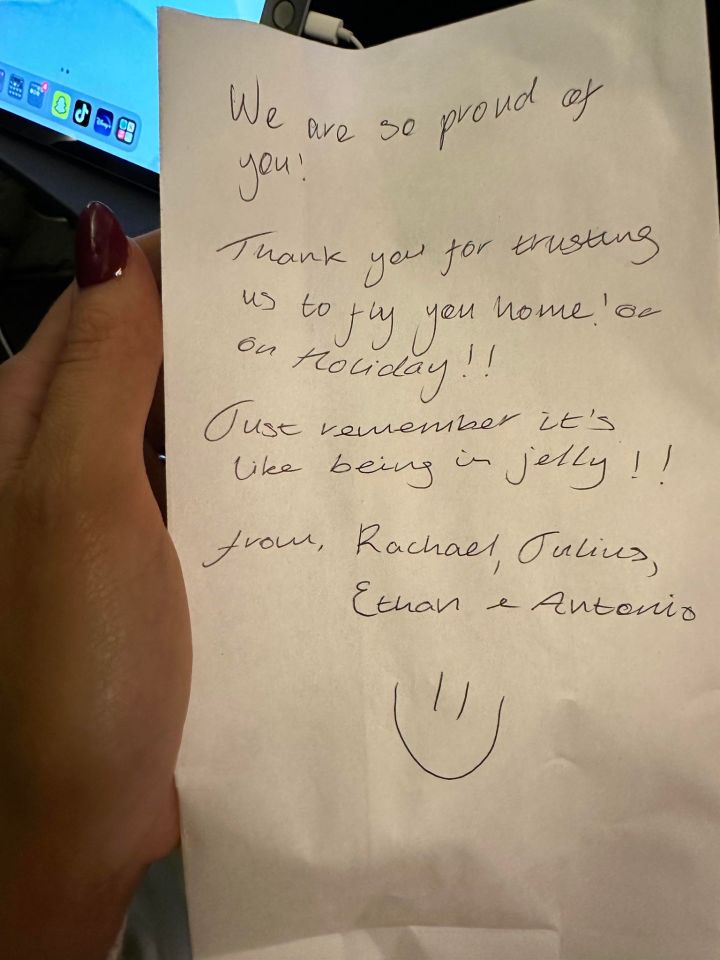 We are so proud of
you!
Thank you for trusting
us to fly you home! or
on Holiday!!
Just remember it's
like being in jelly!!
from, Rachael, Julius,
Ethan & Antonio